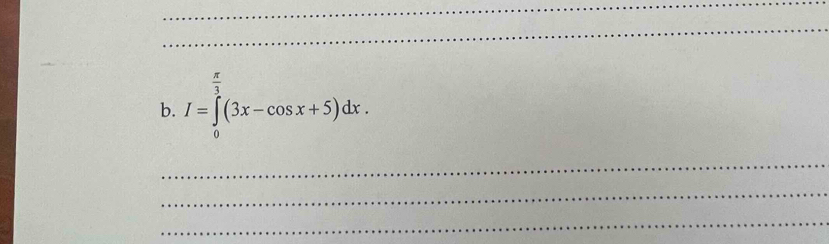 b. $I = \int_{0}^{\frac{\pi}{3}} (3x - \cos x + 5) \, dx$.